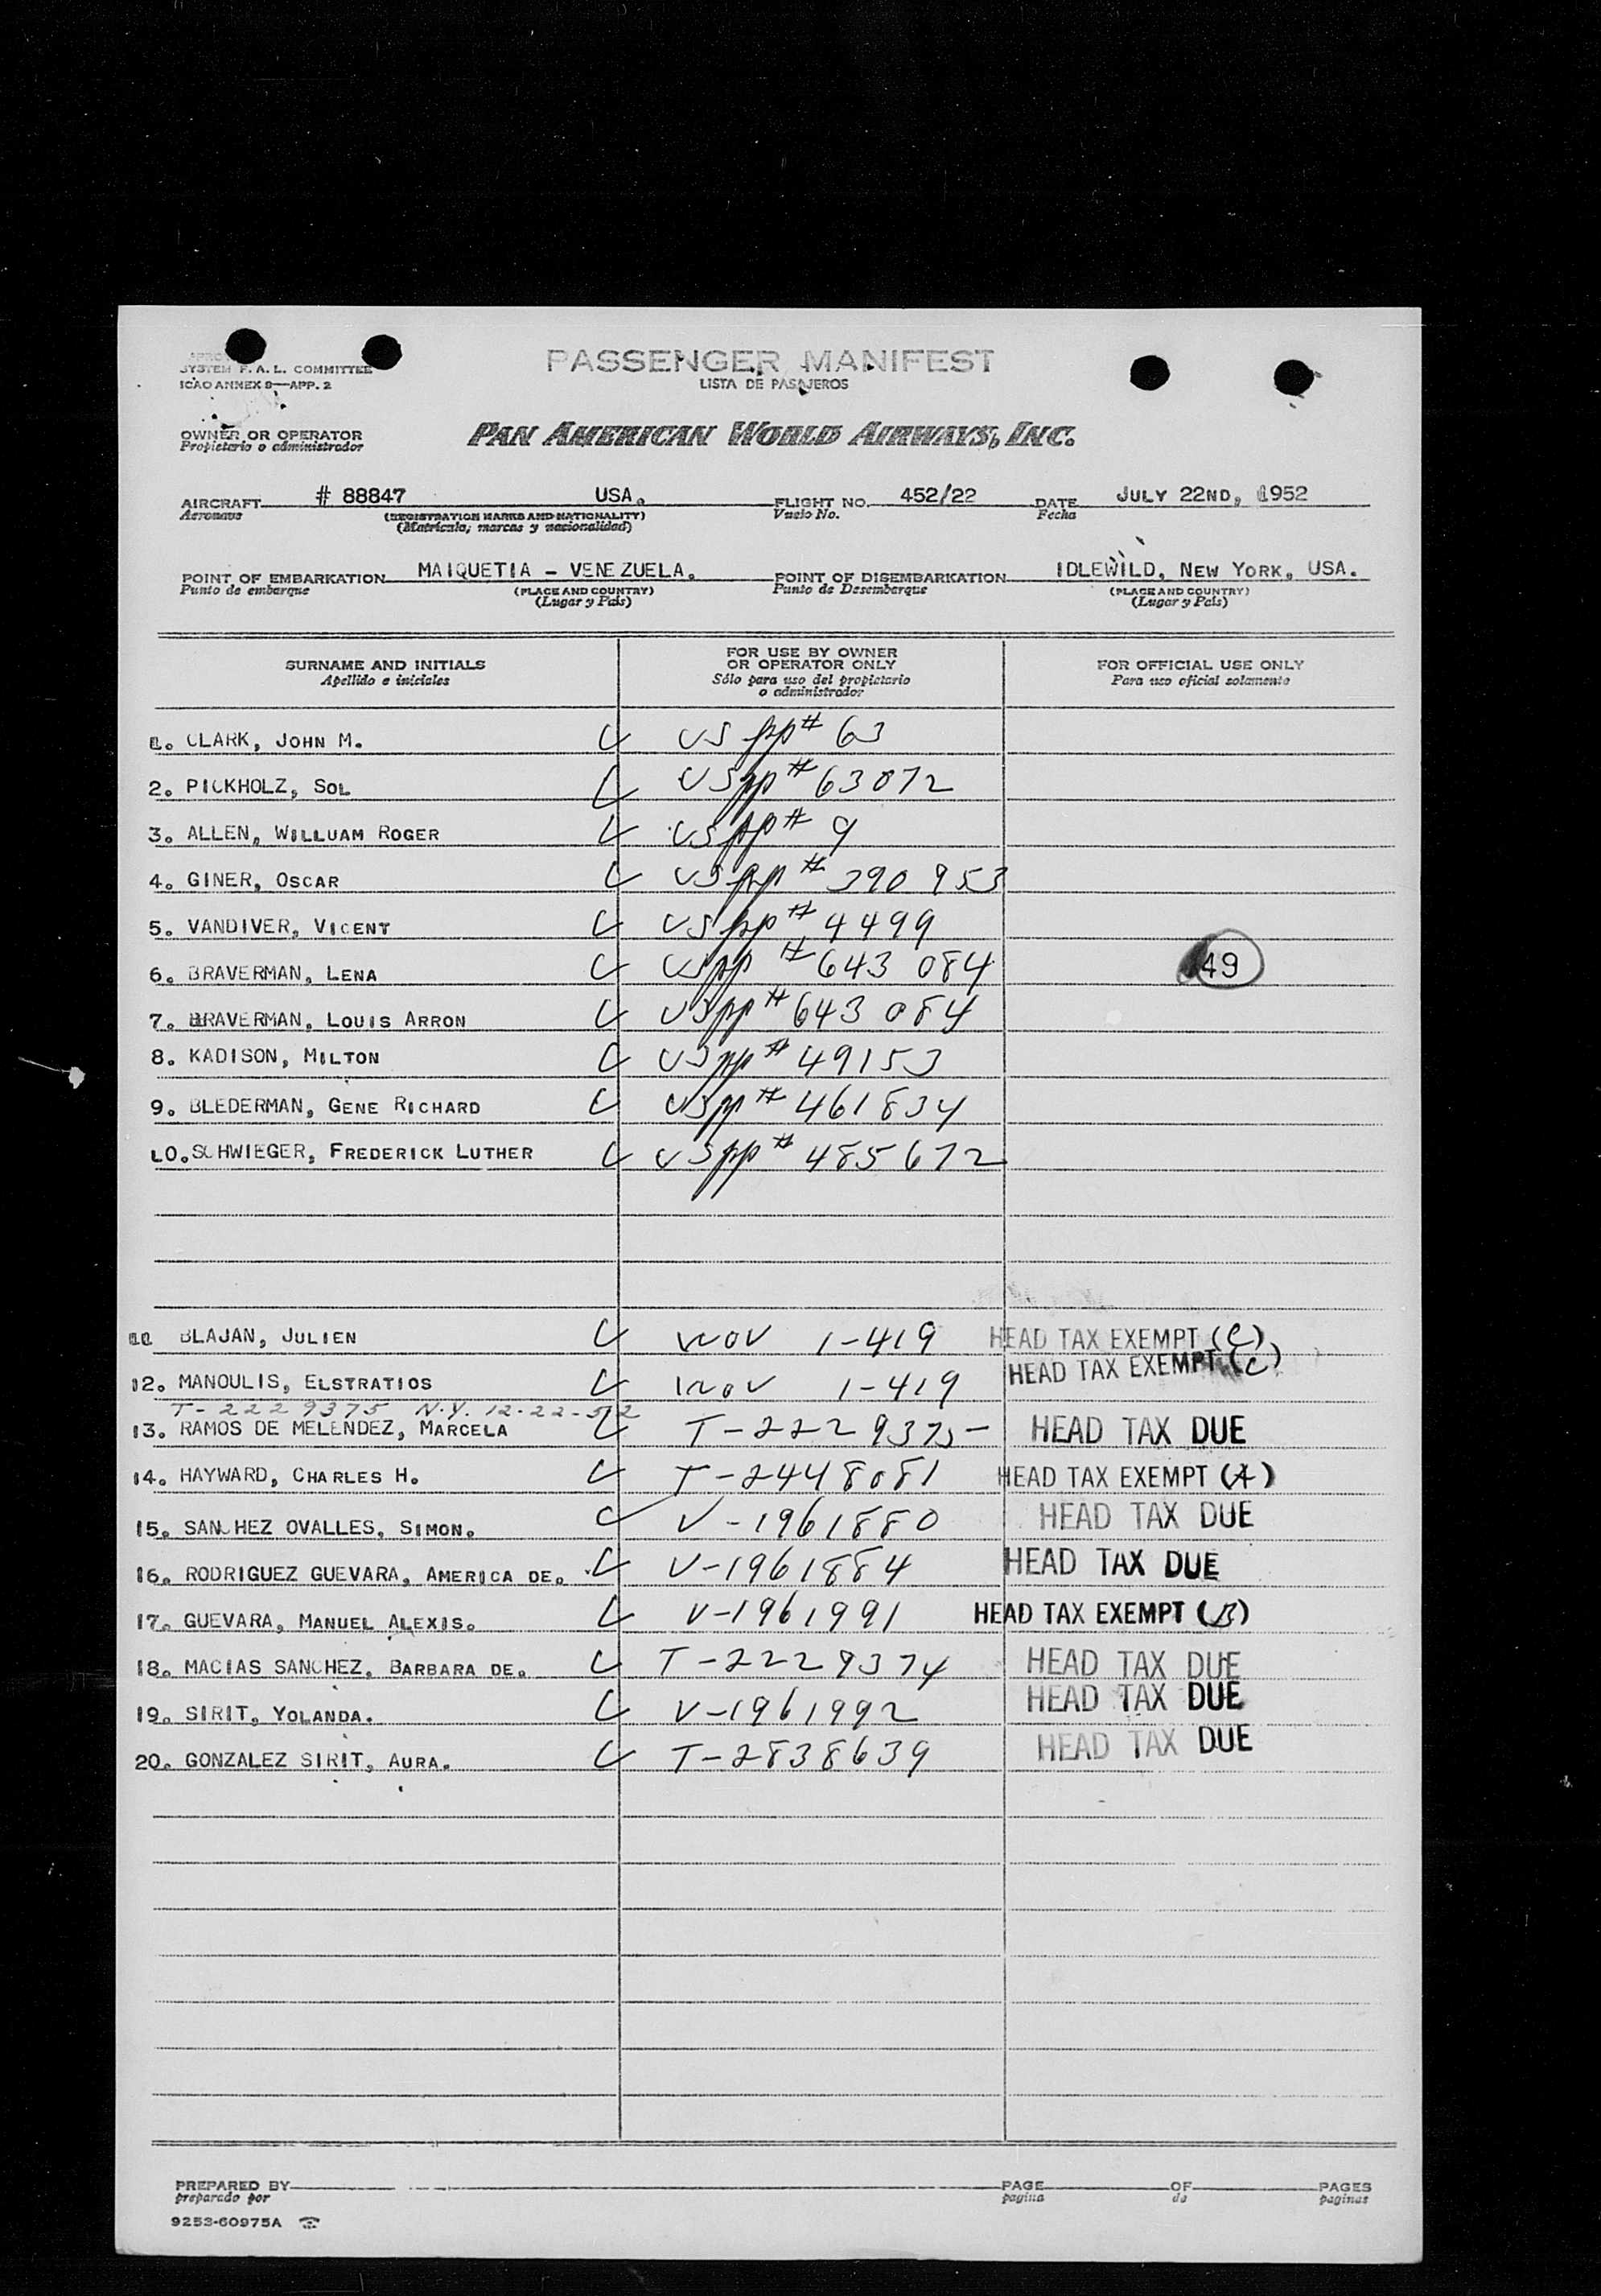 SYSTEM F. A. L. COMMITTEE
ICAO ANNEX 9—APP. 2
PASSENGER MANIFEST
LISTA DE PASAJEROS
OWNER OR OPERATOR
Propietario o administrador
PAN AMERICAN WORLD AIRWAYS, INC.
AIRCRAFT # 88847 USA. FLIGHT NO. 452/22 DATE JULY 22ND, 1952
Aeronave (REGISTRATION MARKS AND NATIONALITY) Vuelo No. Fecha
(Matrícula, marcas y nacionalidad)
POINT OF EMBARKATION MAIQUETIA - VENEZUELA. POINT OF DISEMBARKATION IDLEWILD, NEW YORK, USA.
Punto de embarque (PLACE AND COUNTRY) Punto de Desembarque (PLACE AND COUNTRY)
(Lugar y País) (Lugar y País)
SURNAME AND INITIALS
Apellido e iniciales
FOR USE BY OWNER
OR OPERATOR ONLY
Sólo para uso del propietario
o administrador
FOR OFFICIAL USE ONLY
Para uso oficial solamente
1. CLARK, JOHN M. US pp# 63
2. PICKHOLZ, SOL US pp# 63072
3. ALLEN, WILLUAM ROGER US pp# 9
4. GINER, OSCAR US pp# 390 953
5. VANDIVER, VICENT US pp# 4499
6. BRAVERMAN, LENA US pp #643 084 49
7. BRAVERMAN, LOUIS ARRON US pp# 643 084
8. KADISON, MILTON US pp# 49153
9. BLEDERMAN, GENE RICHARD US pp# 461834
10. SCHWIEGER, FREDERICK LUTHER US pp# 485672
11 BLAJAN, JULIEN 1-419 HEAD TAX EXEMPT (C)
12. MANOULIS, ELSTRATIOS 1-419 HEAD TAX EXEMPT (C)
T-2229375 N.Y. 12-22-52
13. RAMOS DE MELENDEZ, MARCELA T-2229375- HEAD TAX DUE
14. HAYWARD, CHARLES H. T-2448081 HEAD TAX EXEMPT (A)
15. SANCHEZ OVALLES, SIMON. V-1961880 HEAD TAX DUE
16. RODRIGUEZ GUEVARA, AMERICA DE. V-1961884 HEAD TAX DUE
17. GUEVARA, MANUEL ALEXIS. V-1961991 HEAD TAX EXEMPT (B)
18. MACIAS SANCHEZ, BARBARA DE. T-2229374 HEAD TAX DUE
19. SIRIT, YOLANDA. V-1961992 HEAD TAX DUE
20. GONZALEZ SIRIT, AURA. T-2838639 HEAD TAX DUE
PREPARED BY PAGE OF PAGES
preparado por pagina de paginas
9253-60975A